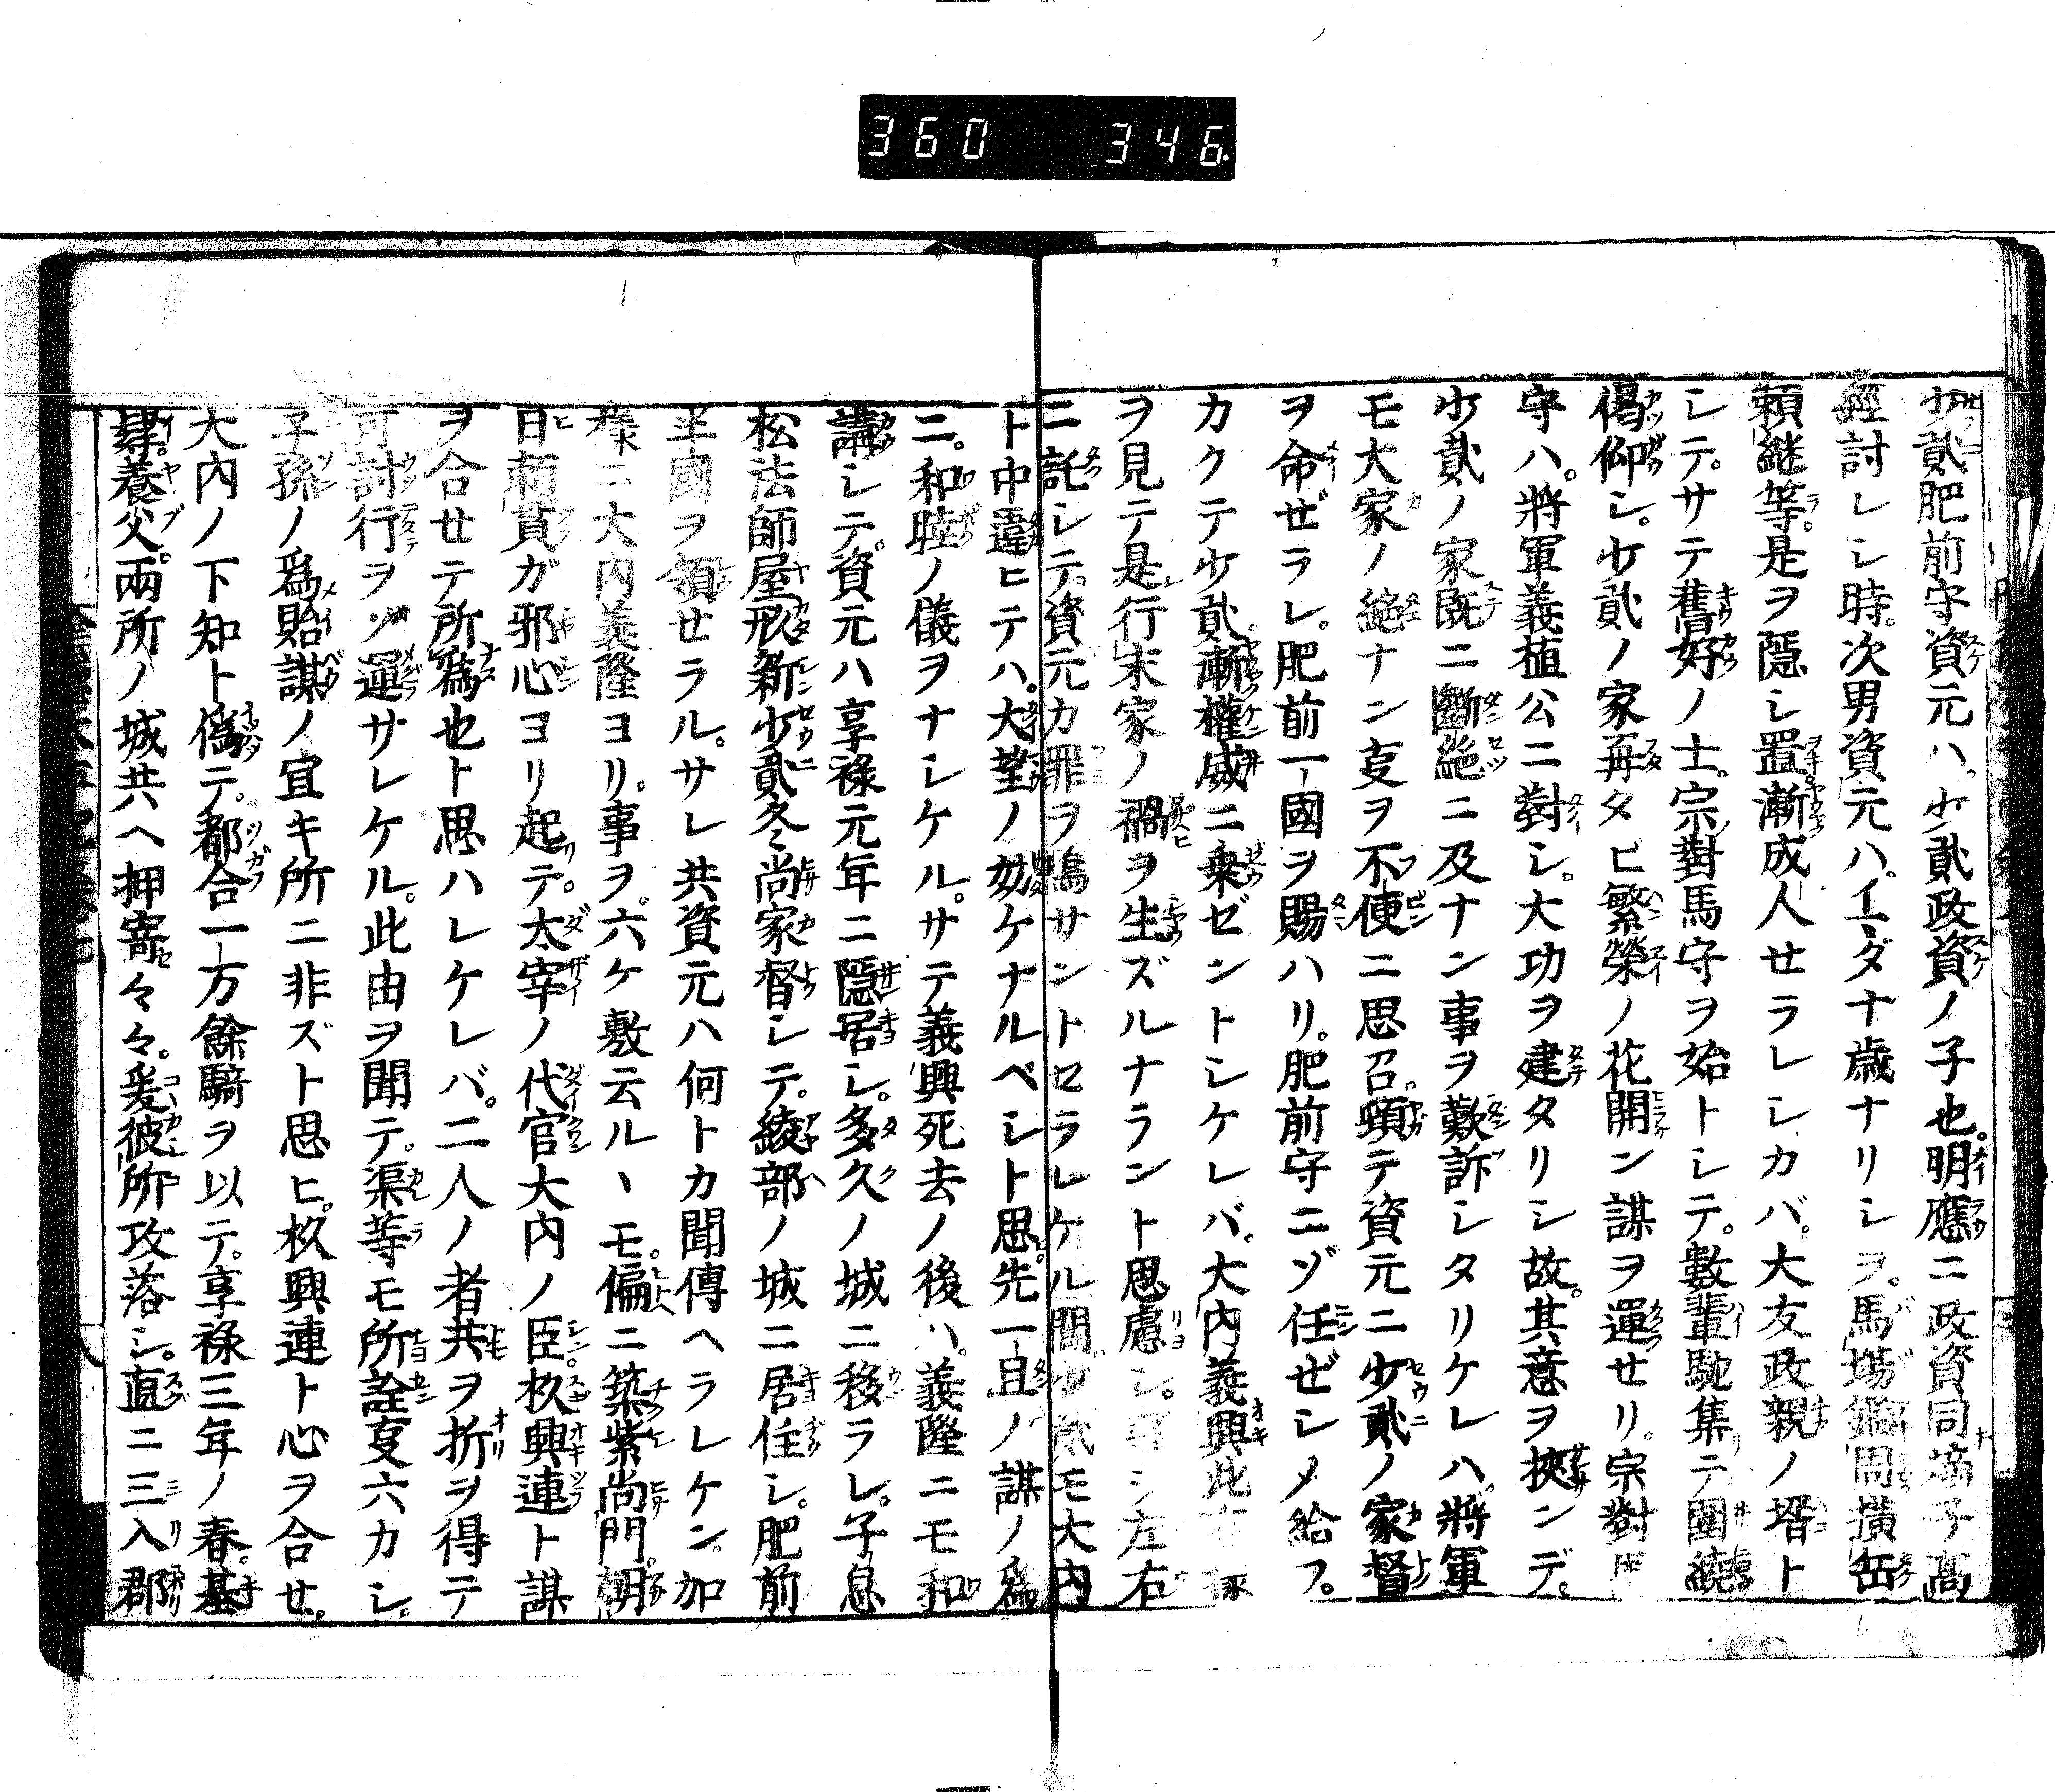 360 346
少貳肥前守資元ハ。少貳政資ノ子也。明應ニ政資同嫡子高
經討レシ時。次男資元ハ。イマダ十歳ナリシヲ。馬場鑑周横岳
頼継等。是ヲ隠シ置。漸成人せラレシカバ。大友政親ノ壻ト
シテ。サテ舊好ノ士。宗對馬守ヲ始トシテ。數輩馳集テ圍繞
偈仰シ。少貳ノ家再タビ繁榮ノ花開ン謀ヲ運せリ。宗對馬
守ハ。將軍義植公ニ對シ。大功ヲ建タリシ故。其意ヲ挾ンデ。
少貳ノ家既ニ斷絶ニ及ナン事ヲ歎訴シタリケレハ。將軍
モ大家ノ絶ナン㕝ヲ不便ニ思召。頃テ資元ニ少貳ノ家督
ヲ命ぜラレ。肥前一國ヲ賜ハリ。肥前守ニゾ任ぜシメ給フ。
カクテ少貳漸權威ニ乗ゼントシケレバ。大内義興此有様
ヲ見テ是行末家ノ禍ヲ生ズルナラント思慮シ。 シ左右
ニ託シテ。資元カ罪ヲ鳴サントセラレケル間少貳モ大内
ト中違ヒテハ。大望ノ妨ケナルベシト思。先一且ノ謀ノ爲
ニ。和睦ノ儀ヲナシケル。サテ義興死去ノ後ハ。義隆ニモ和
講シテ。資元ハ享禄元年ニ隠居シ。多久ノ城ニ移ラレ。子息
松法師屋形新少貳冬尚家督シテ。綾部ノ城ニ居住シ。肥前
半國ヲ領せラル。サレ共資元ハ何トカ聞傳ヘラレケン。加
樣ニ大内義隆ヨリ。事ヲ。六ケ敷云ルヽモ。偏ニ築紫尚門。朝
日頼貫ガ邪心ヨリ起テ。太宰ノ代官大内ノ臣。杦興連ト謀
ヲ合せテ所爲也ト思ハレケレバ。二人ノ者共ヲ折ヲ得テ
可討行ヲゾ運サレケル。此由ヲ聞テ。渠等モ所詮㕝六カシ。
子孫ノ爲貽謀ノ宜キ所ニ非ズト思ヒ。杦興連ト心ヲ合せ。
大内ノ下知ト偽テ。都合一万餘騎ヲ以テ。享禄三年ノ春。基
肄。養父。兩所ノ城共ヘ押寄々々。爰彼所攻落シ。直ニ三入郡